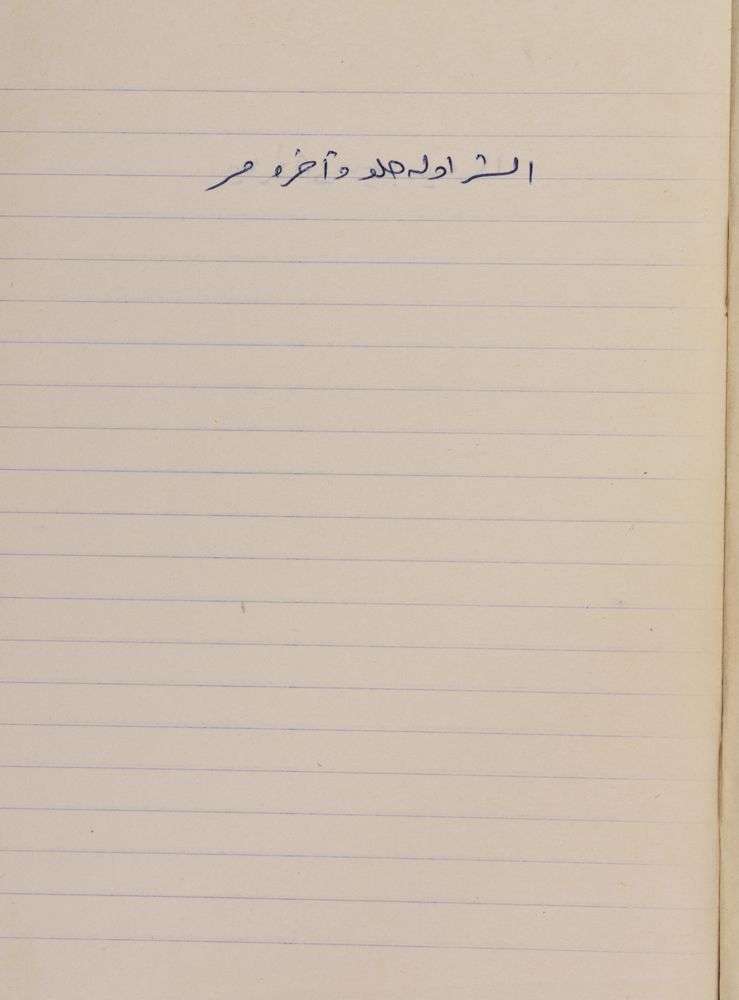 الشر اوله حلو وآخره مر